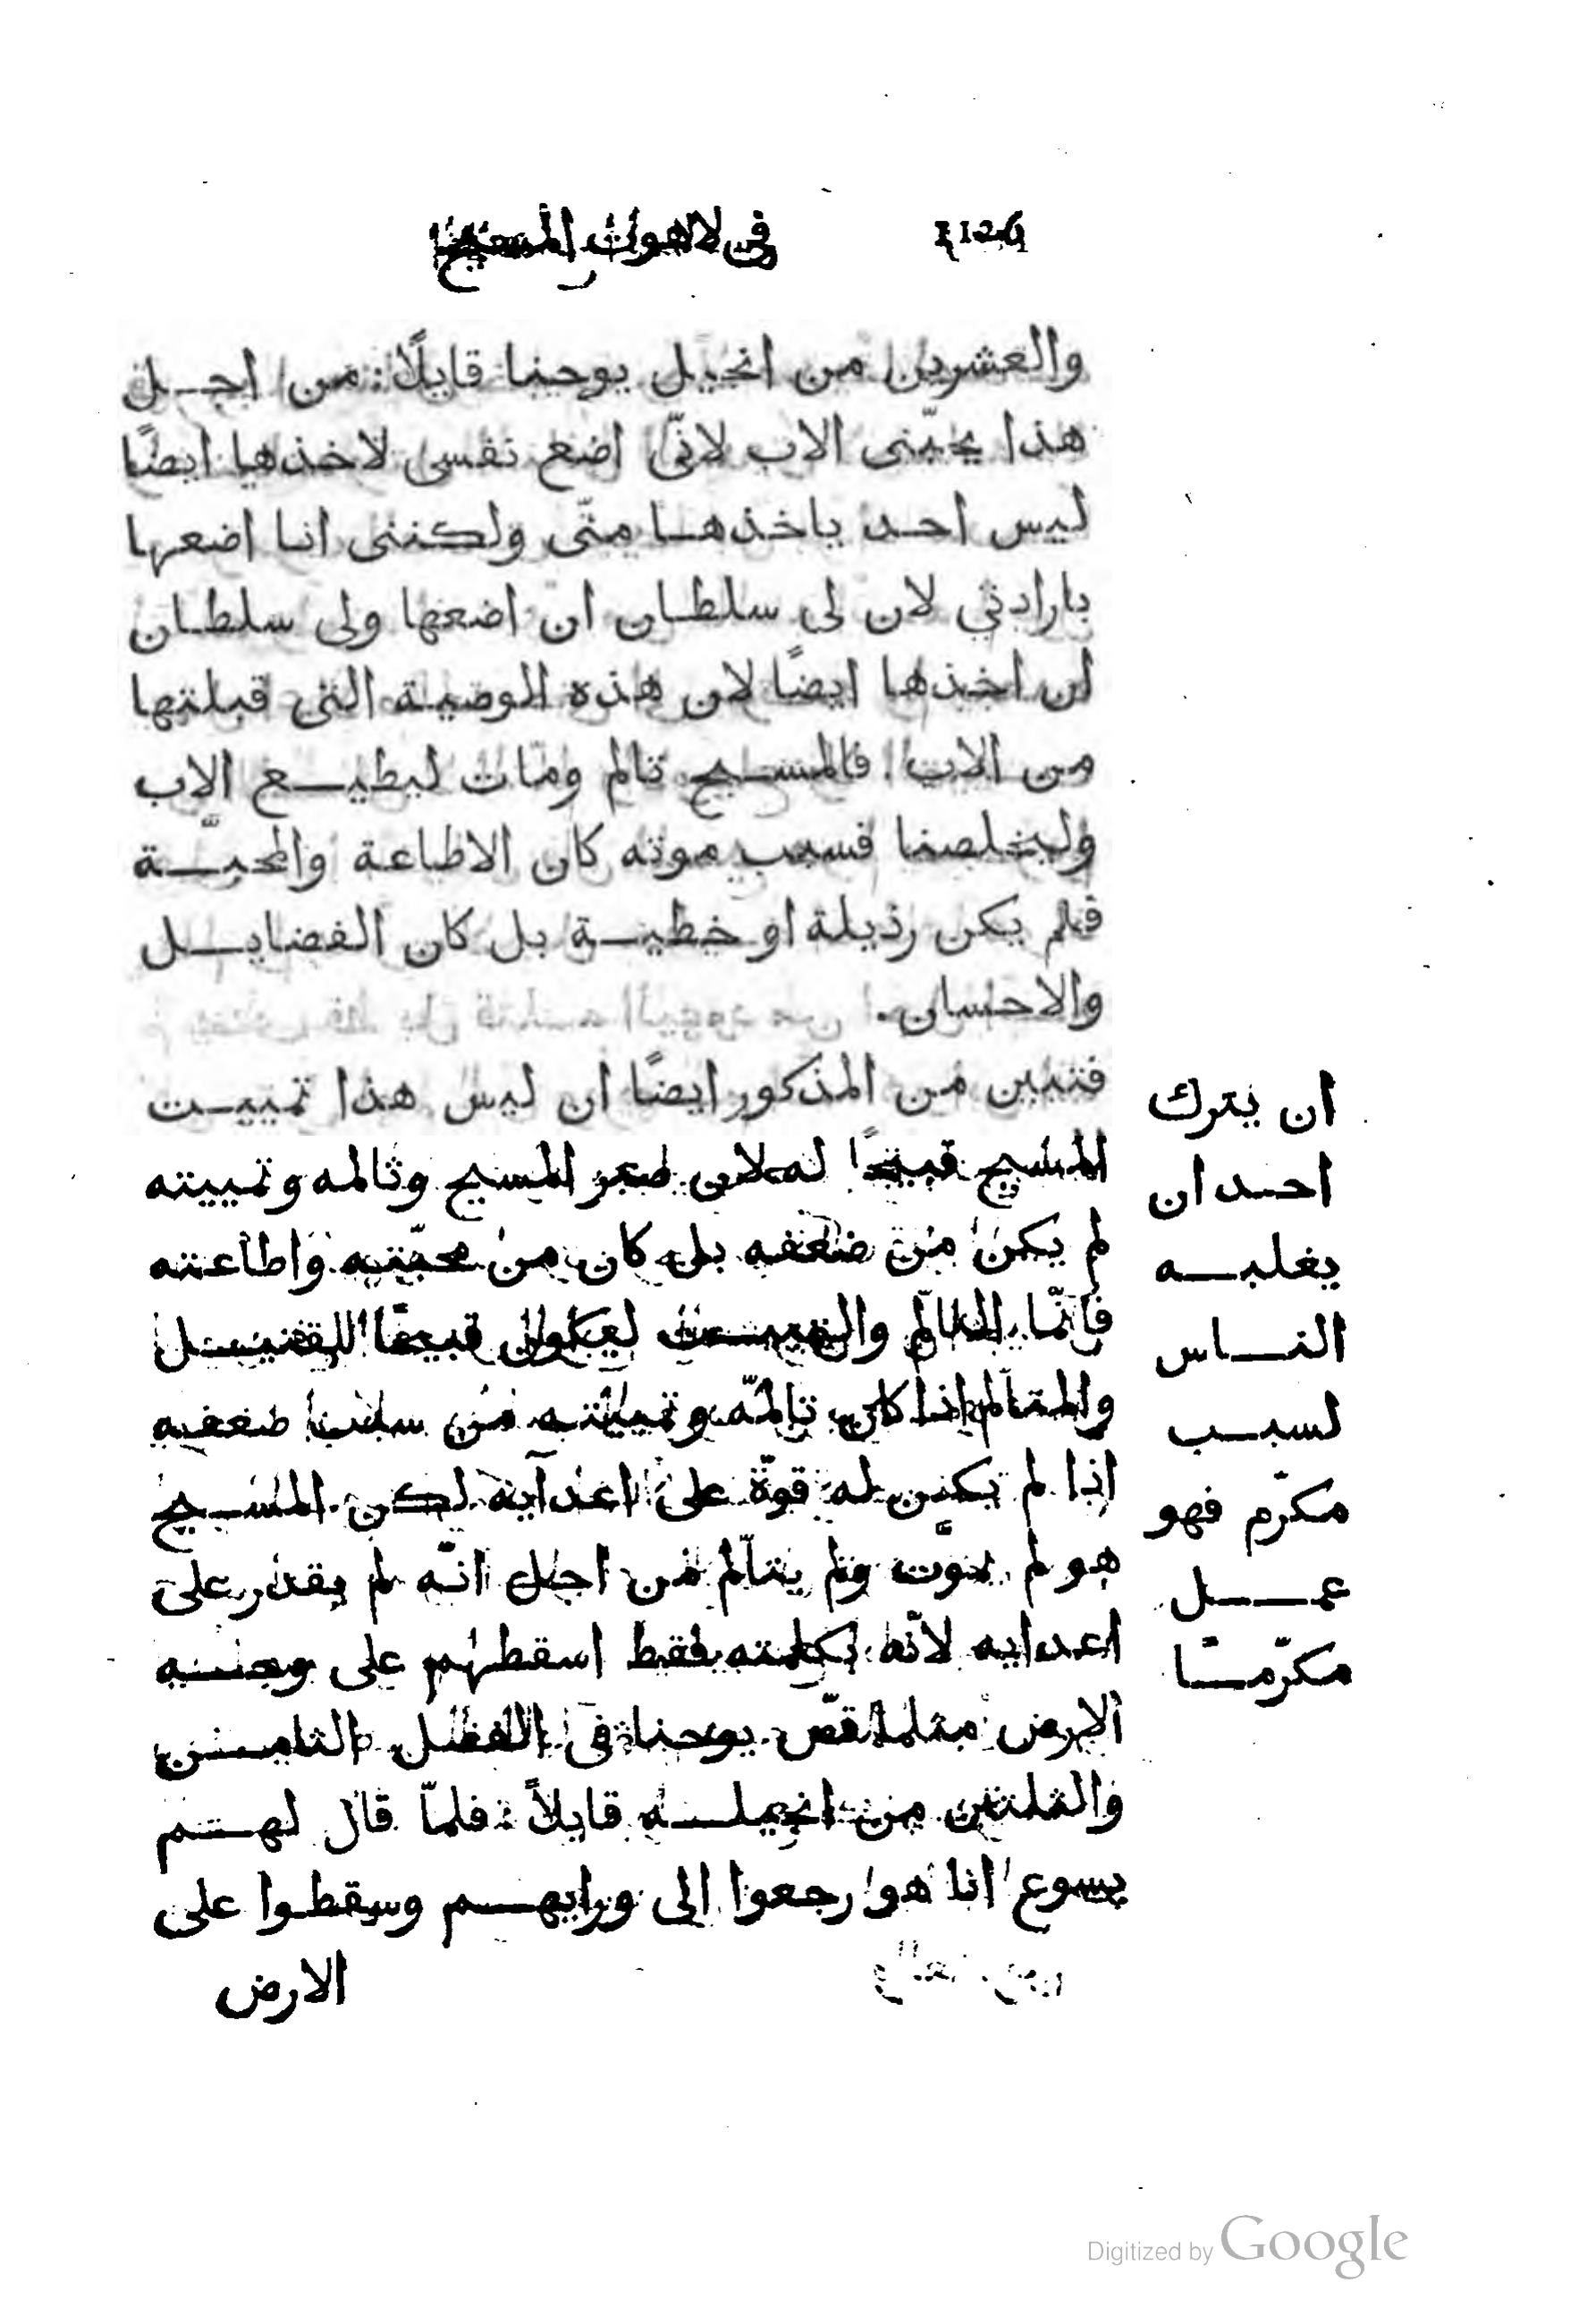 1126
في لاهوت المسيح
والعشرين من انجيل يوحنا قايلًا: من اجل
هذا يحبّنى الاب لانّى اضع نفسى لاخذها ايضًا
ليس احد ياخذها منّى ولكننى انا اضعها
بارادتي لان لى سلطان ان اضعها ولى سلطان
ان اخذها ايضًا لان هذه الوصية التى قبلتها
من الاب. فالمسيح تالم ومات ليطيع الاب
وليخلصنا فسبب موته كان الاطاعة والمحبّة
فلم يكن رذيلة او خطية بل كان الفضايل
والاحسان.
فتبين من المذكور ايضًا ان ليس هذا تمييت
المسيح قبيحًا له لان صبر المسيح وتالمه وتمييته
لم يكن من ضعفه بل كان من محبّته واطاعته
فانّما التالّم والتمييت ليكون قبيحًا للقتيل
والمتالم اذا كان تالمّه وتمييته من سبب ضعفه
اذا لم يكن له قوّة على اعدآيه لكن المسيح
هو لم يموّت ولم يتالّم من اجل انّه لم يقدر على
اعدايه لانّه بكلمته فقط اسقطهم على وجه
الارض مثلما قصّ يوحنا فى الفصل الثامن
والثلثين من انجيله قايلًا: فلمّا قال لهم
يسوع انا هو رجعوا الى ورايهم وسقطوا على
الارض
ان يترك
احد ان
يغلبه
الناس
لسبب
مكرّم فهو
عمل
مكرّمًا
Digitized by Google